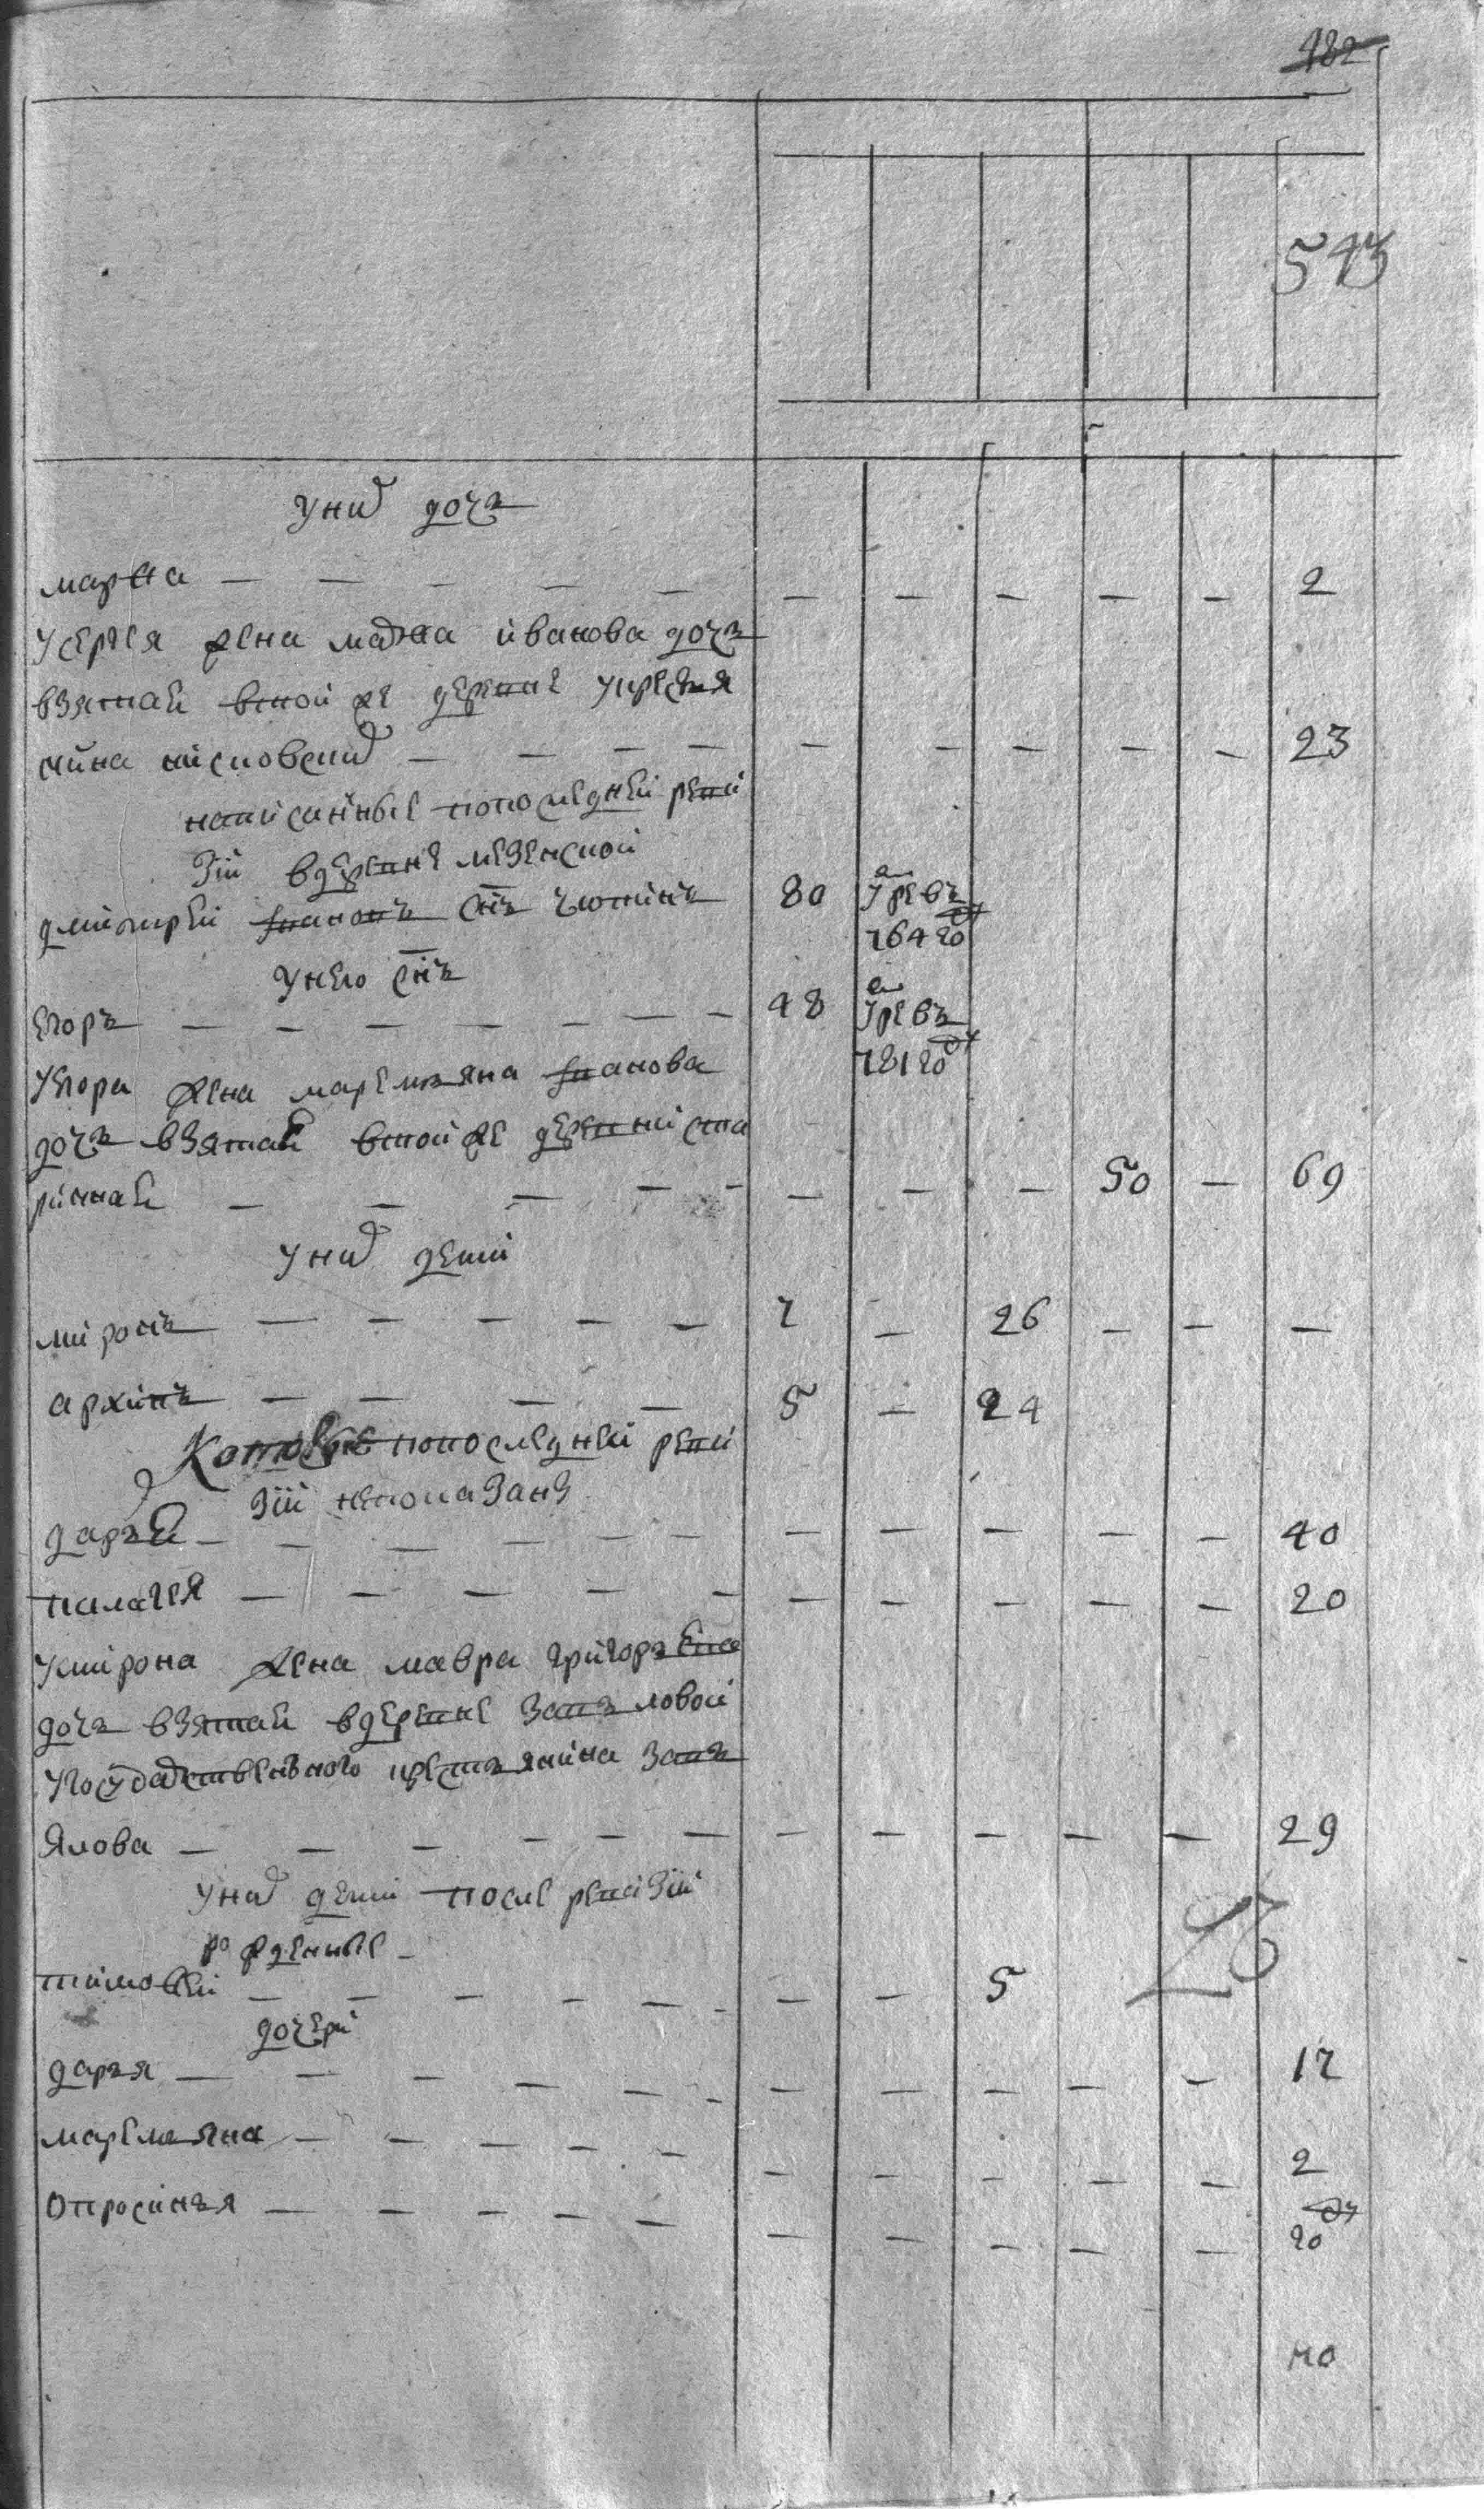 482
543
у них дочь
марѳа — — — — — — — — — — 2
у сергея жена маѳра иванова дочь
взятая в той же деревне у крестья
нина кисловских — — — — — — — — — 23
написанные по последней реви
зіи в деревне мезенской
дмитрей іванов снъ чютинъ 80 умре въ 764 году
у него снъ
егоръ — — — — — — — 48 умре въ 781 году
у егора жена маремьяна іванова
дочь взятая в той же деревни ста
ринная — — — — — — — — 50 — 69
у них дети
миронъ — — — — — 7 — 26 — — —
архипъ — — — — 5 — 24
Которые по последней реви
зіи непоказаны
дарья — — — — — — — — — — — 40
палагея — — — — — — — — — — 20
у мирона жена мавра григорьева
дочь взятая в деревне завьяловой
у государственного крестьянина завь
ялова — — — — — — — — — — — 29
у них дети после ревизіи
рожденные —
тимоѳей — — — — — — — — 5
23
дочери
дарья — — — — — — — — — — — 12
маремьяна — — — — — — — — — — 2
опросинья — — — — — — — — — — 20
но